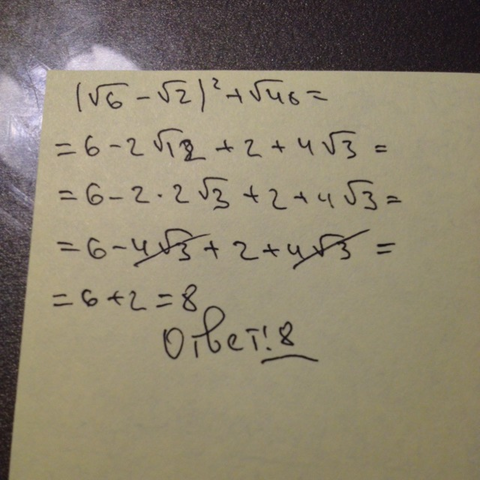 (√6 - √2)² + √46 =
= 6 - 2√12 + 2 + 4√3 =
= 6 - 2 · 2√3 + 2 + 4√3 =
= 6 - 4√3 + 2 + 4√3 =
= 6 + 2 = 8
Ответ: 8